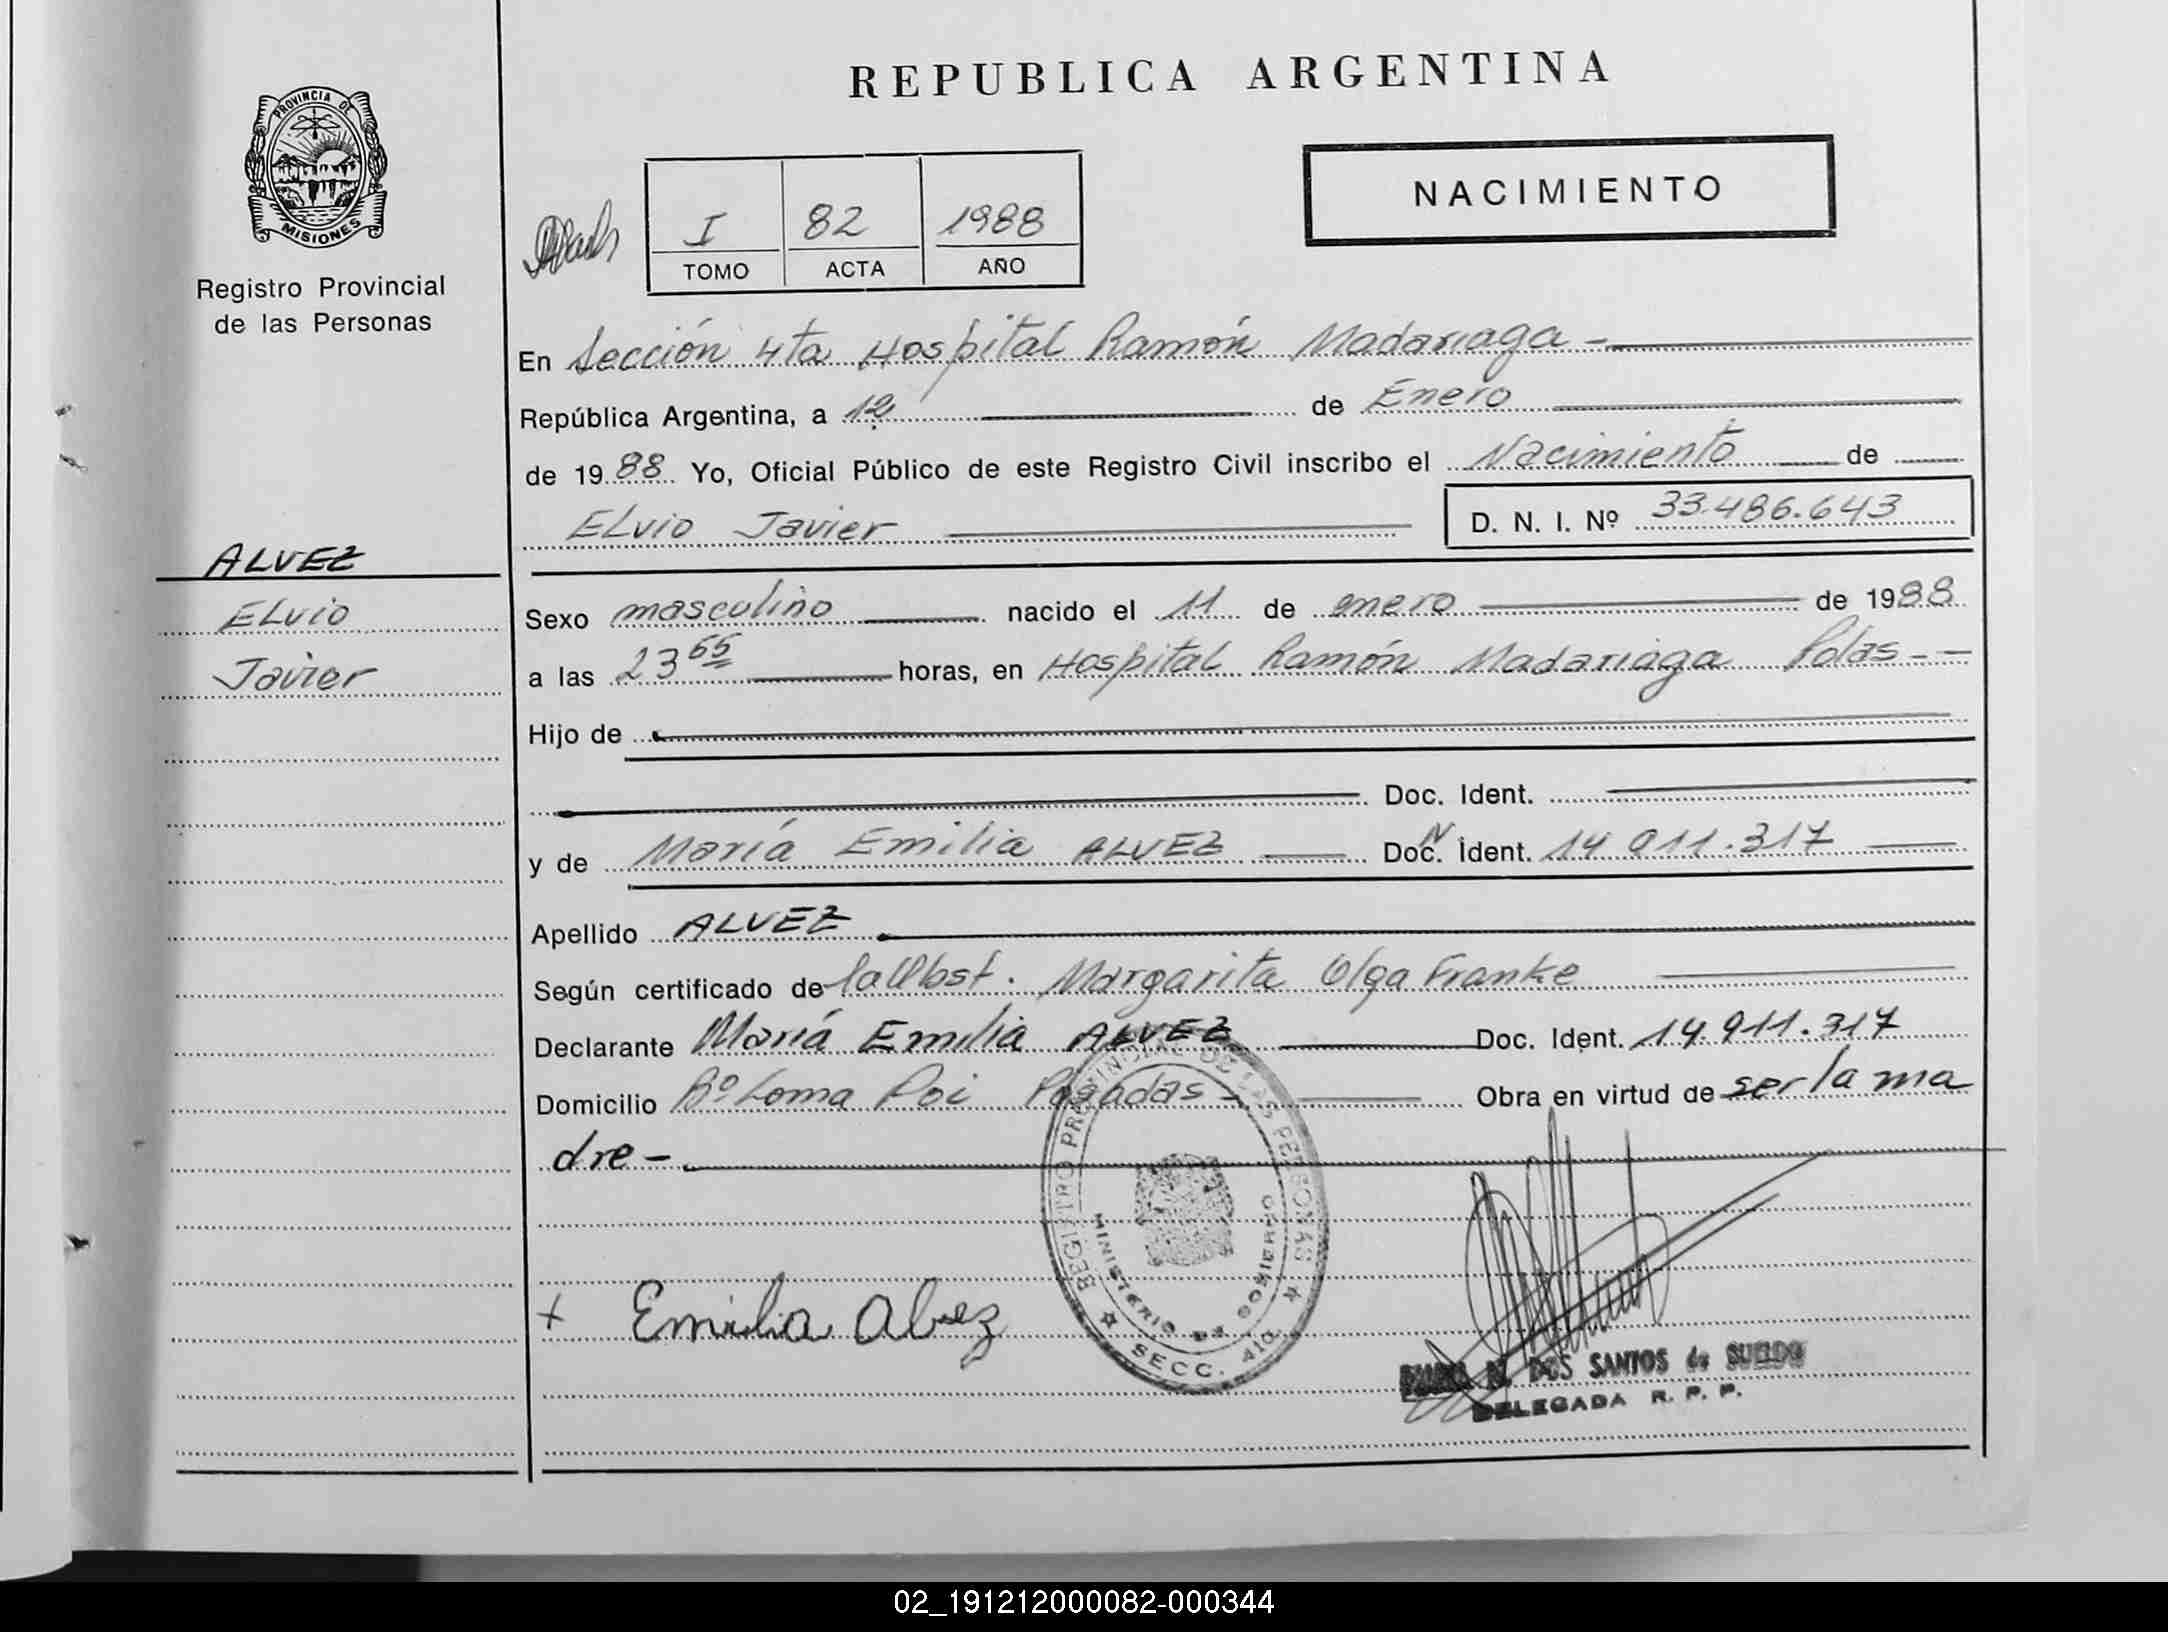 REPUBLICA ARGENTINA
PROVINCIA DE
MISIONES
Registro Provincial
de las Personas
NACIMIENTO
I 82 1988
TOMO ACTA AÑO
En Sección 4ta Hospital Ramón Madariaga -
República Argentina, a 12 de Enero
de 1988 Yo, Oficial Público de este Registro Civil inscribo el Nacimiento de
ELvio Javier D. N. I. Nº 33.486.643
ALVEZ
ELvio
Javier
Sexo masculino nacido el 11 de enero de 1988
a las 23 horas, en Hospital Ramón Madariaga Pdas - -
Hijo de
Doc. Ident.
y de María Emilia ALVEZ Doc. Ident. 14 911.317
Apellido ALVEZ
Según certificado de Margarita Olga Franke
Declarante María Emilia ALVEZ Doc. Ident. 14.911.317
Domicilio Bº Loma Poi Posadas - Obra en virtud de ser la ma
dre -
REGISTRO PROVINCIAL DE LAS PERSONAS
MINISTERIO DE GOBIERNO
SECC. 4ta
+ Emilia Alvez
DOS SANTOS de SUELDO
DELEGADA R. P. P.
02_191212000082-000344